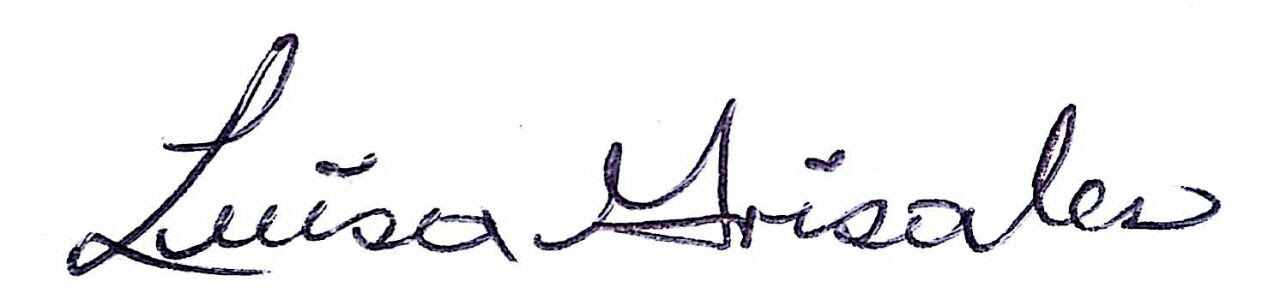 Luisa Grisales